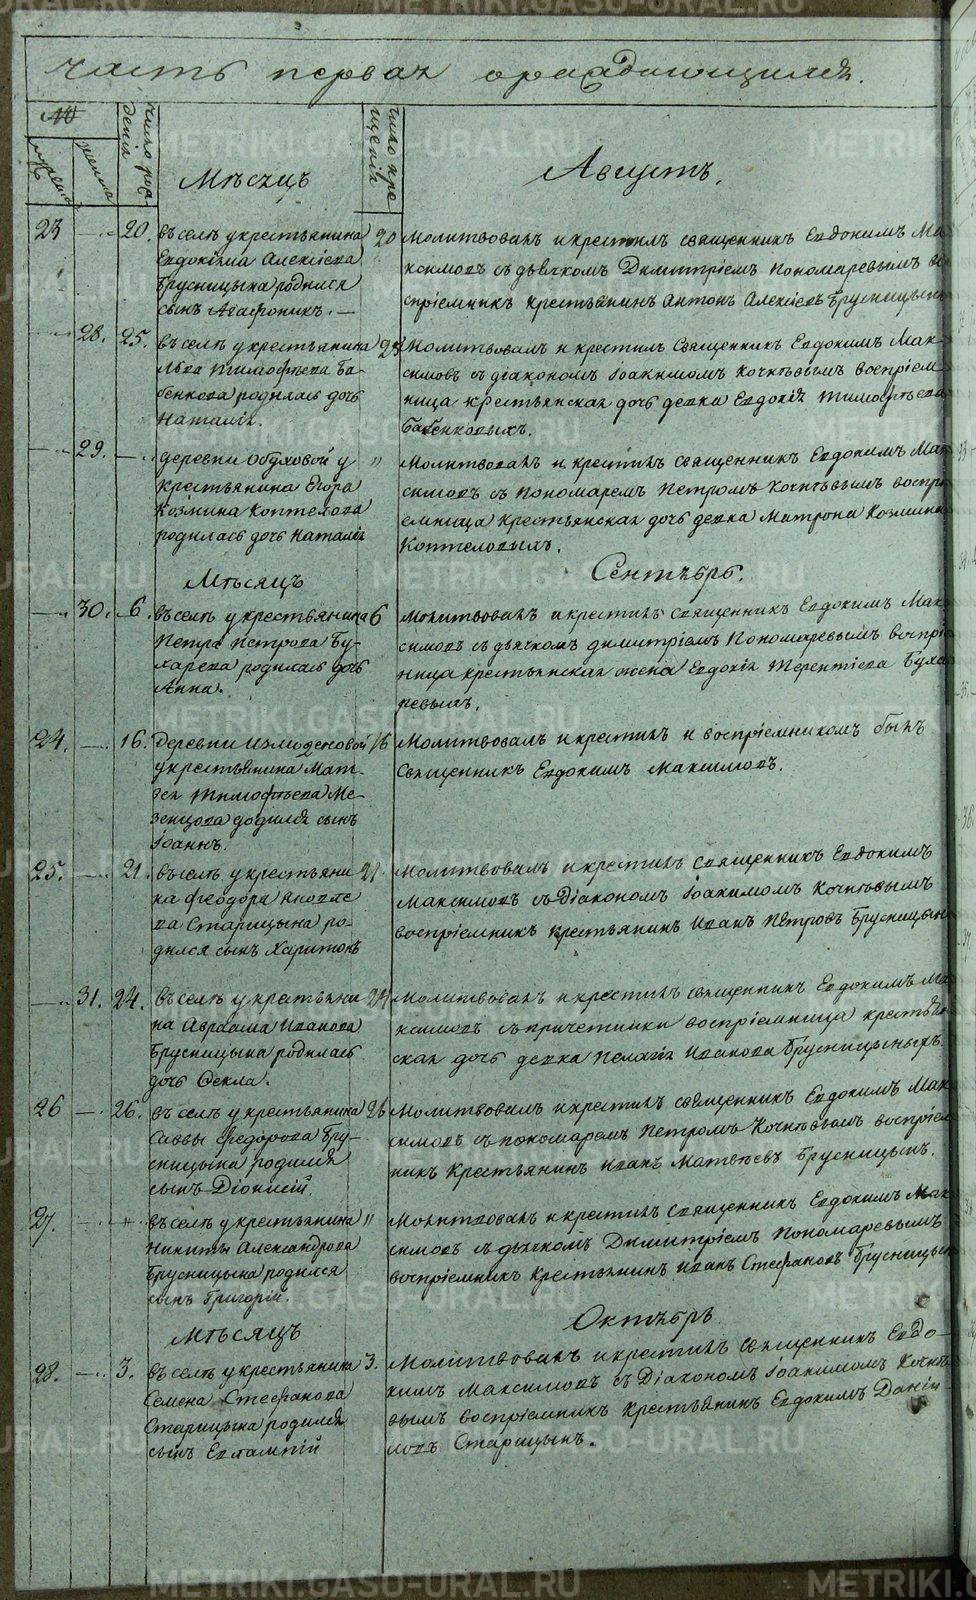 часть первая о раждающихся.
№
мужеска
женска
число рож
денія
Мѣсяцъ
число кре
щенія
Августъ.
23 — 20. въ селѣ у крестьянина
Евдокима Алексѣева
Брусницына родился
сынъ Агафоникъ. —
20 Молитвовалъ и крестилъ священникъ Евдокимъ Ма
ксимовъ съ дьячкомъ Димитріемъ Пономаревымъ во
спріемникъ крестьянинъ Антонъ Алексѣевъ Брусницынъ
— 28. 25. въ селѣ у крестьянина
Льва Тимофѣева Ба-
бенкова родилась дочь
Наталія.
25 Молитвовалъ и крестилъ Священникъ Евдокимъ Мак-
симовъ съ діакономъ Іоакимомъ Кочнѣвымъ воспріем-
ница крестьянская дочь девка Евдокія Тимофѣева
Бабенковыхъ.
— 29. — деревни Обуховой у
крестьянина Егора
Козмина Коптелова
родилась дочь Наталія
" Молитвовалъ и крестилъ священникъ Евдокимъ Мак
симовъ съ пономаремъ Петромъ Кочнѣвымъ воспрі
емница крестьянская дочь девка Матрона Козмина
Коптеловыхъ.
Мѣсяцъ
Сентябрь.
— 30. 6. въ селѣ у крестьянина
Петра Петрова Бу-
харева родилась дочь
Анна.
6 Молитвовалъ и крестилъ священникъ Евдокимъ Мак
симовъ съ дьячкомъ Димитріемъ Пономаревымъ воспріе
мница крестьянская жена Евдокія Терентіева Буха
ревыхъ.
24. — 16. деревни Измоденовой
у крестьянина Мат-
вея Тимофѣева Ме-
зенцова родился сынъ
Іоаннъ.
16 Молитвовалъ и крестилъ и воспріемникомъ былъ
Священникъ Евдокимъ Максимовъ.
25. — 21. въ селѣ у крестьяни
на Феодора Яковле
ва Старицына ро-
дился сынъ Харитонъ
21. Молитвовалъ и крестилъ Священникъ Евдокимъ
Максимовъ съ Діакономъ Іоакимомъ Кочнѣвымъ
воспріемникъ крестьянинъ Иванъ Петровъ Брусницынъ
— 31. 24. въ селѣ у крестьяни
на Авраама Иванова
Брусницына родилась
дочь Фекла.
24 Молитвовалъ и крестилъ священникъ Евдокимъ Ма
ксимовъ съ причетники воспріемница крестьян
ская дочь девка Пелагія Иванова Брусницыныхъ.
26 — 26. въ селѣ у крестьянина
Саввы Федорова Бру-
сницына родился
сынъ Діонисій.
26 Молитвовалъ и крестилъ священникъ Евдокимъ Мак
симовъ съ пономаремъ Петромъ Кочнѣвымъ воспріем
никъ Крестьянинъ Иванъ Матвѣевъ Брусницынъ.
27. — " въ селѣ у крестьянина
Никиты Александрова
Брусницына родился
сынъ Григорій.
" Молитвовалъ и крестилъ Священникъ Евдокимъ Мак
симовъ съ дьячкомъ Димитріемъ Пономаревымъ
воспріемникъ Крестьянинъ Иванъ Стефановъ Брусницын
Мѣсяцъ
Октябрь
28. — 3. въ селѣ у крестьянина
Семена Стефанова
Старицына родился
сынъ Евлампій
3. Молитвовалъ и крестилъ священникъ Евдо-
кимъ Максимовъ съ Діакономъ Іоакимомъ Кочнѣ
вымъ воспріемникъ крестьянинъ Евдокимъ Даніи-
ловъ Старицынъ.
METRIKI.GASO-URAL.RU